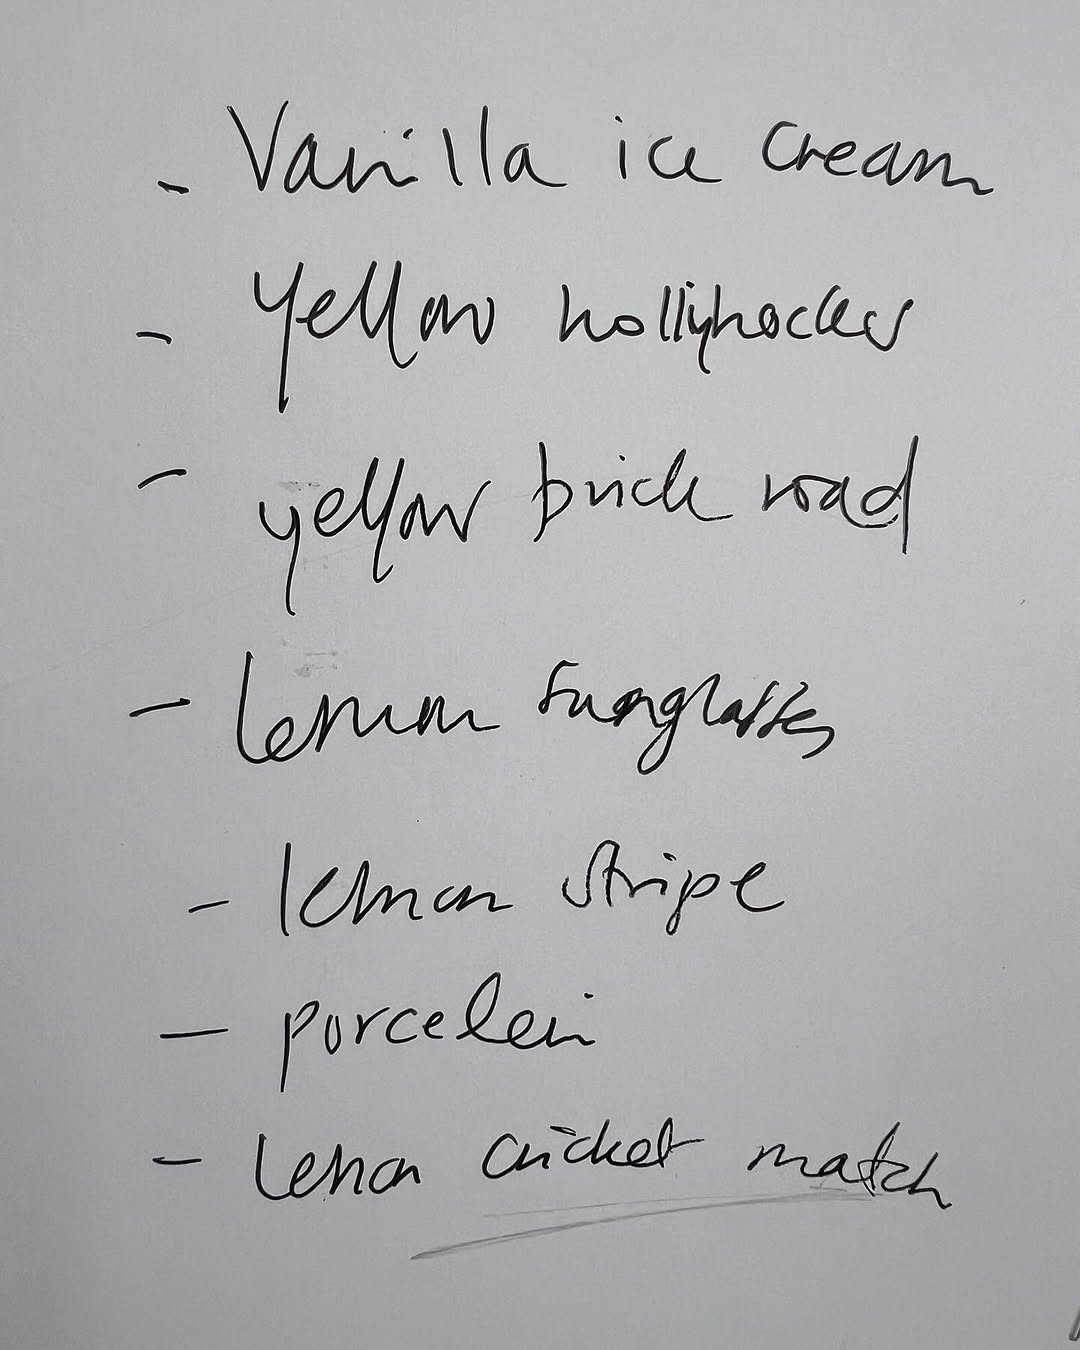 - Vanilla ice cream
- Yellow hollyhocks
- yellow brick road
- lemon sunglasses
- lemon stripe
- porcelein
- lemon cricket match